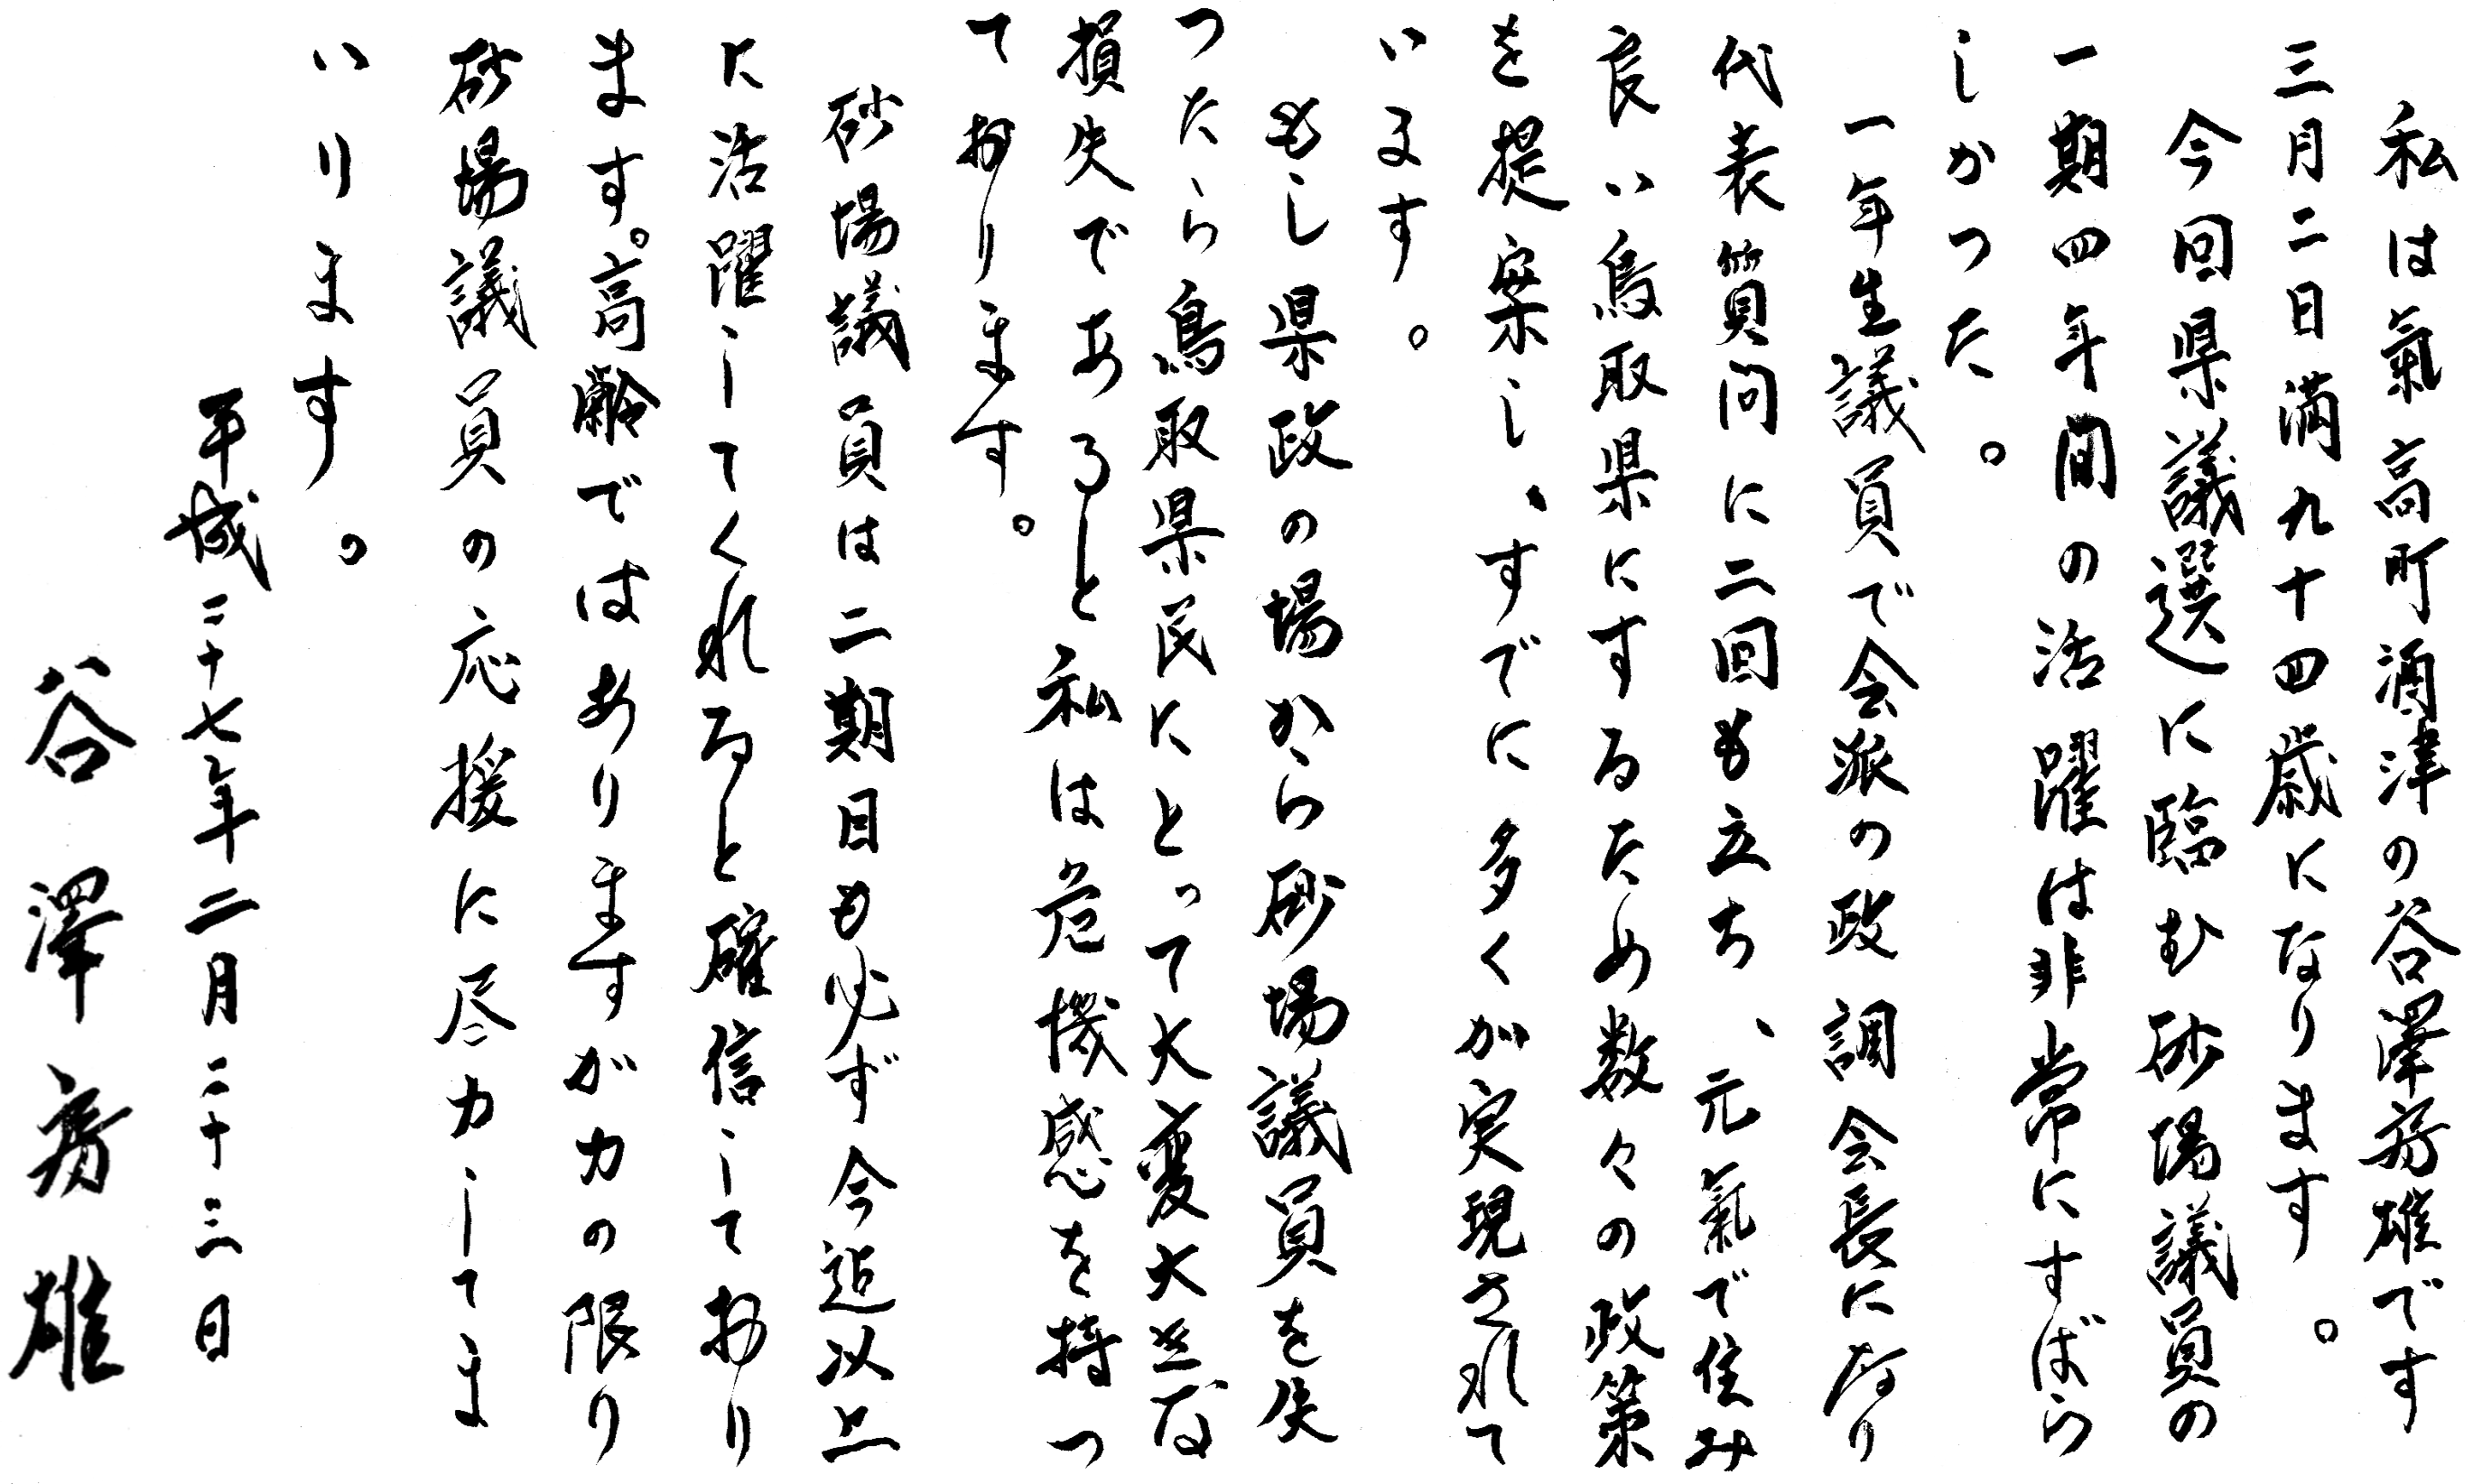 私は氣高町酒津の谷澤房雄です
三月二日満九十四歳になります。
今回県議選に臨む砂場議員の
一期四年間の活躍は非常にすばら
しかった。
一年生議員で会派の政調会長になり
代表質問に二回も立ち、元氣で住み
良い鳥取県にするため数々の政策
を提案し、すでに多くが実現されて
います。
もし県政の場から砂場議員を失
ったら鳥取県民にとって大変大きな
損失であると私は危機感を持っ
ております。
砂場議員は二期目も必ず今迄以上
に活躍してくれると確信しており
ます。高齢ではありますが力の限り
砂場議員の応援に尽力してま
いります。
平成二十七年二月二十三日
谷澤房雄